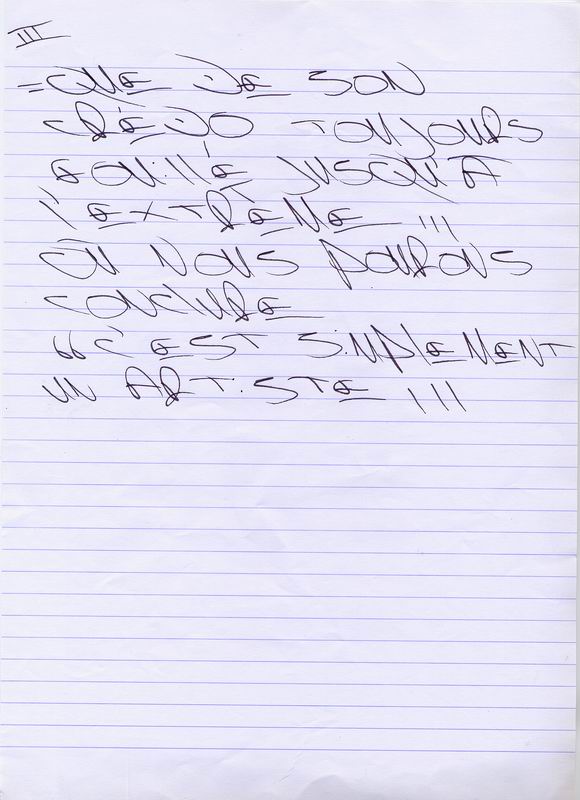 III
= QUE DE SON
CRÉDO TOUJOURS
JUSQU'A
L'EXTRÊME !!!
OU NOUS POURONS
CONCLURE
“C'EST SIMPLEMENT
UN ARTISTE !!!